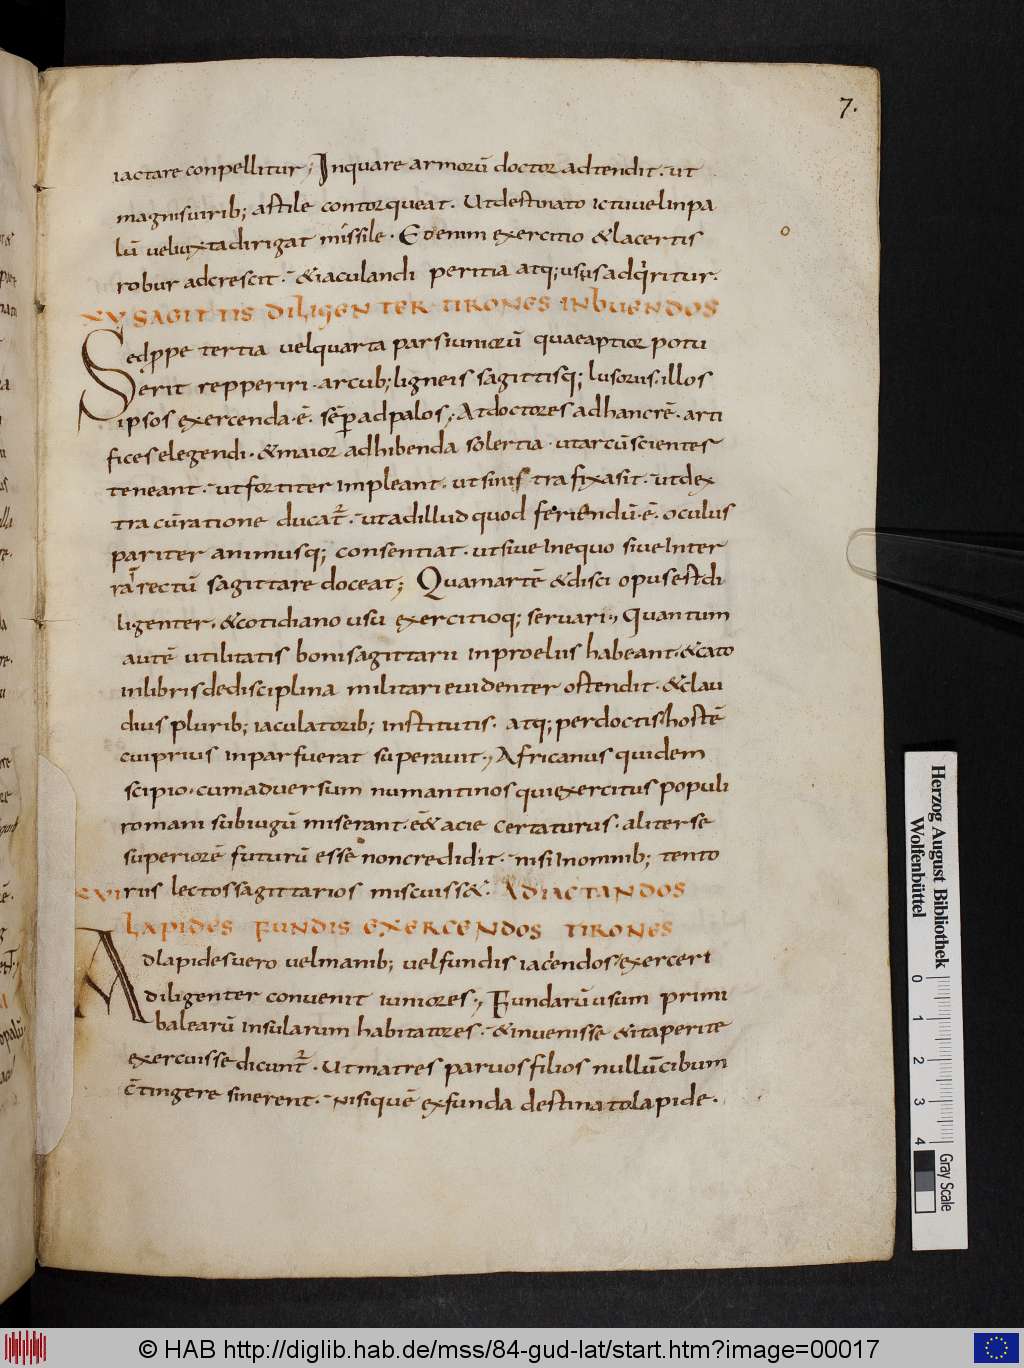 7.
iactare conpellitur; Inquare armorū doctor adtendit. ut
magnisuirib; astile contorqueat. Utdestinato ictuuelinpa
lū ueliuxtadirigat missile. Etenim exercitio &lacertis
robur adcrescit. &iaculandi peritia atq; ususadqiritur.
XV SAGITTIS DILIGENTER TIRONES INBUENDOS
Sedprope tertia uelquarta parsiuniorū quaeaptior potu
erit repperiri. arcub; ligneis sagittisq; lusoriis. illos
ipsos exercenda.ē. sēp adpalos; Atdoctores adhancrē. arti
fices elegendi. &maior adhibenda solertia. utarcūscientes
teneant. utfortiter impleant. utsinistra fixasit. utdex
tra cūratione ducat̄. utadilludquod feriendū.ē. oculus
pariter animusq; consentiat. utsiue inequo siue inter
rārectū sagittare doceat; Quamartē &disci opusestdi
ligenter. &cotidiano usu exercitioq; seruari; Quantum
autē utilitatis bonisagittarii inproeliis habeant. &cato
inlibrisdedisciplina militarieuidenter ostendit. &clau
dius plurib; iaculatorib; institutis. atq; perdoctis hostē
cuiprius inparfuerat superauit; Africanus quidem
scipio. cumaduersum numantinos quiexercitus populi
romani subiugū miserant. ē& acie certaturus. aliterse
superiorē futurū esse noncredidit. nisi inomnib; cento
riis lectossagittarios miscuiss&. ADIACTANDOS
XVI
LAPIDES FUNDIS EXERCENDOS TIRONES
Adlapidesuero uelmanib; uelfundis iaciendos exerceri
diligenter conuenit iuniores; Fundarūusum primi
balearū insularum habitatores. &inuenisse &itaperite
exercuisse dicunt̄. Utmatres paruosfilios nullūcibum
c̄tingere sinerent. nisiquē exfunda destinatolapide.
Herzog August Bibliothek
Wolfenbüttel
0 1 2 3 4
Gray Scale
© HAB http://diglib.hab.de/mss/84-gud-lat/start.htm?image=00017